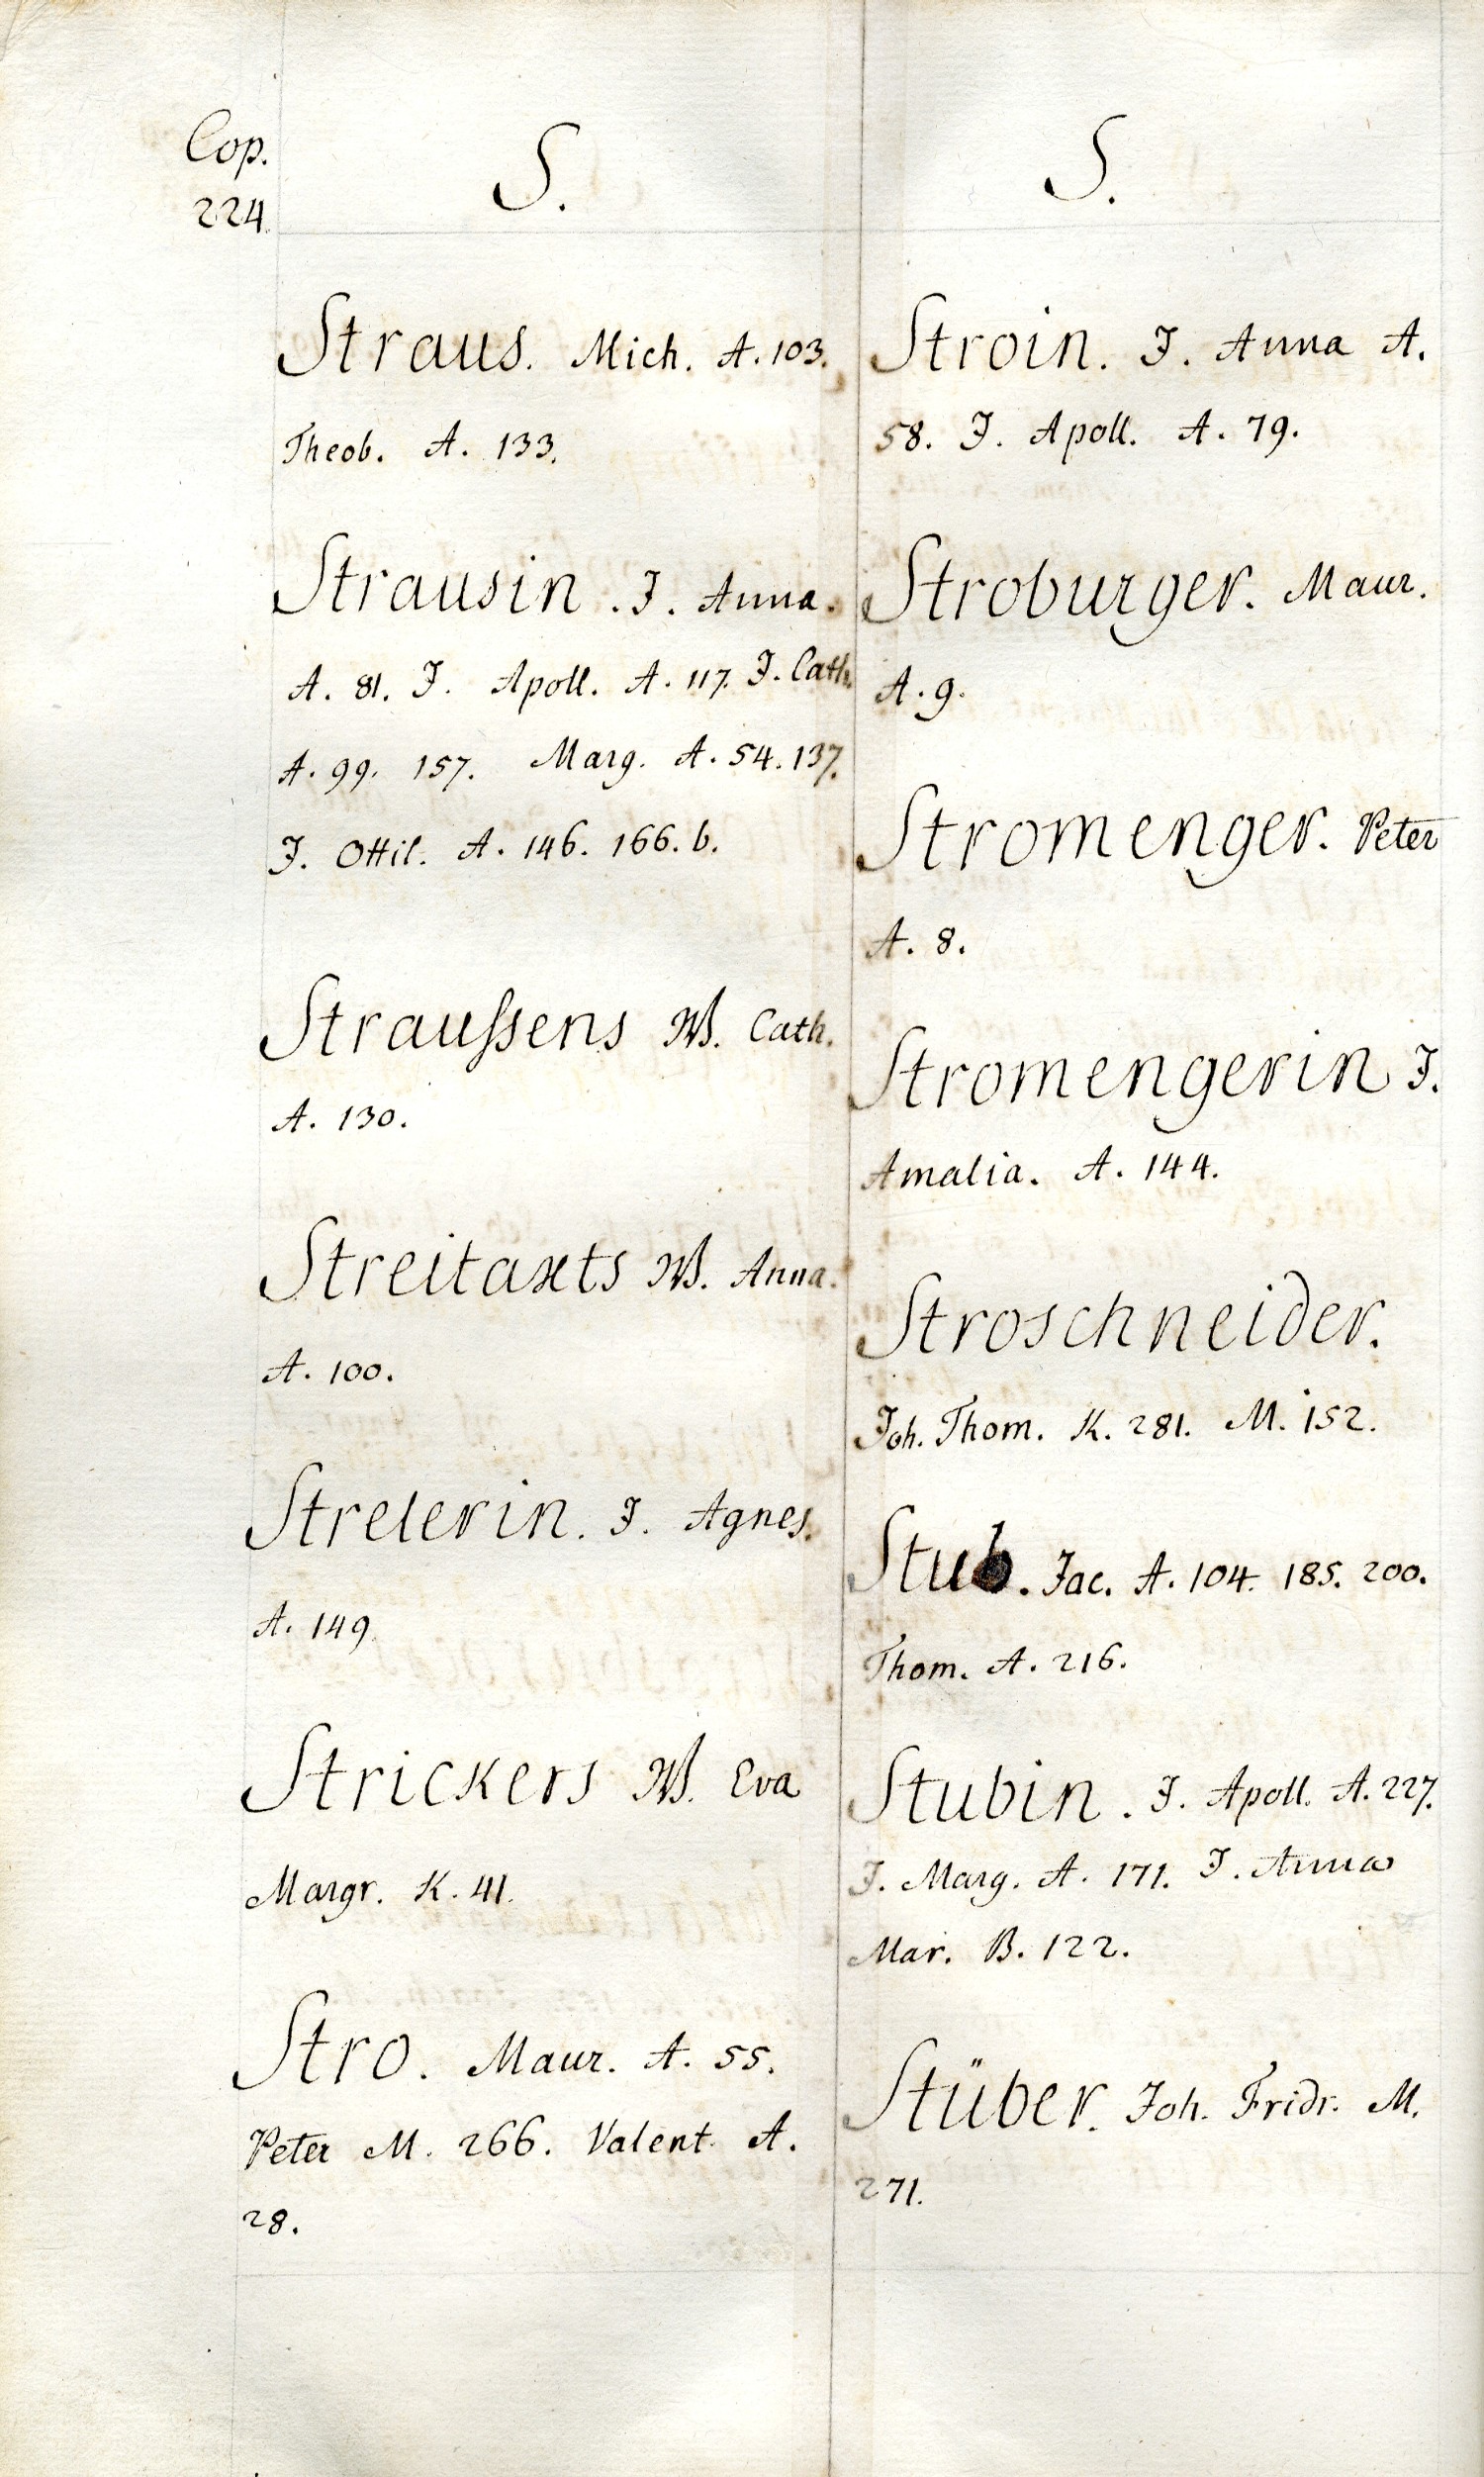 Cop.
224.
S.
Straus. Mich. A. 103.
Theob. A. 133.
Strausin. J. Anna.
A. 81. J. Apoll. A. 117. J. Cath.
A. 99. 157. Marg. A. 54. 137.
J. Ottil. A. 146. 166. b.
Straußens W. Cath.
A. 130.
Streitaxts W. Anna.
A. 100.
Strelerin. J. Agnes.
A. 149.
Strickers W. Eva
Margr. K. 41.
Stro. Maur. A. 55.
Peter M. 266. Valent. A.
28.
S.
Stroin. J. Anna A.
58. J. Apoll. A. 79.
Stroburger. Maur.
A. 9.
Stromenger. Peter
A. 8.
Stromengerin J.
Amalia. A. 144.
Stroschneider.
Joh. Thom. K. 281. M. 152.
Stub. Jac. A. 104. 185. 200.
Thom. A. 216.
Stubin. J. Apoll. A. 227.
J. Marg. A. 171. J. Anna
Mar. B. 122.
Stüber. Joh. Fridr. M.
271.